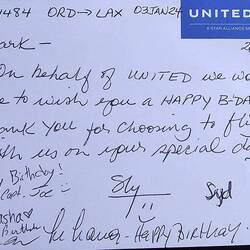 1484 ORD→LAX 03JAN24
UNITED
A STAR ALLIANCE
ark -
On behalf of UNITED we wo
e to wish you a HAPPY B-DA
ank you for choosing to fl
th us on your special d
Birthday!
Capt. Joe
Sly
Syd
asha
Birth
Happy Birthday